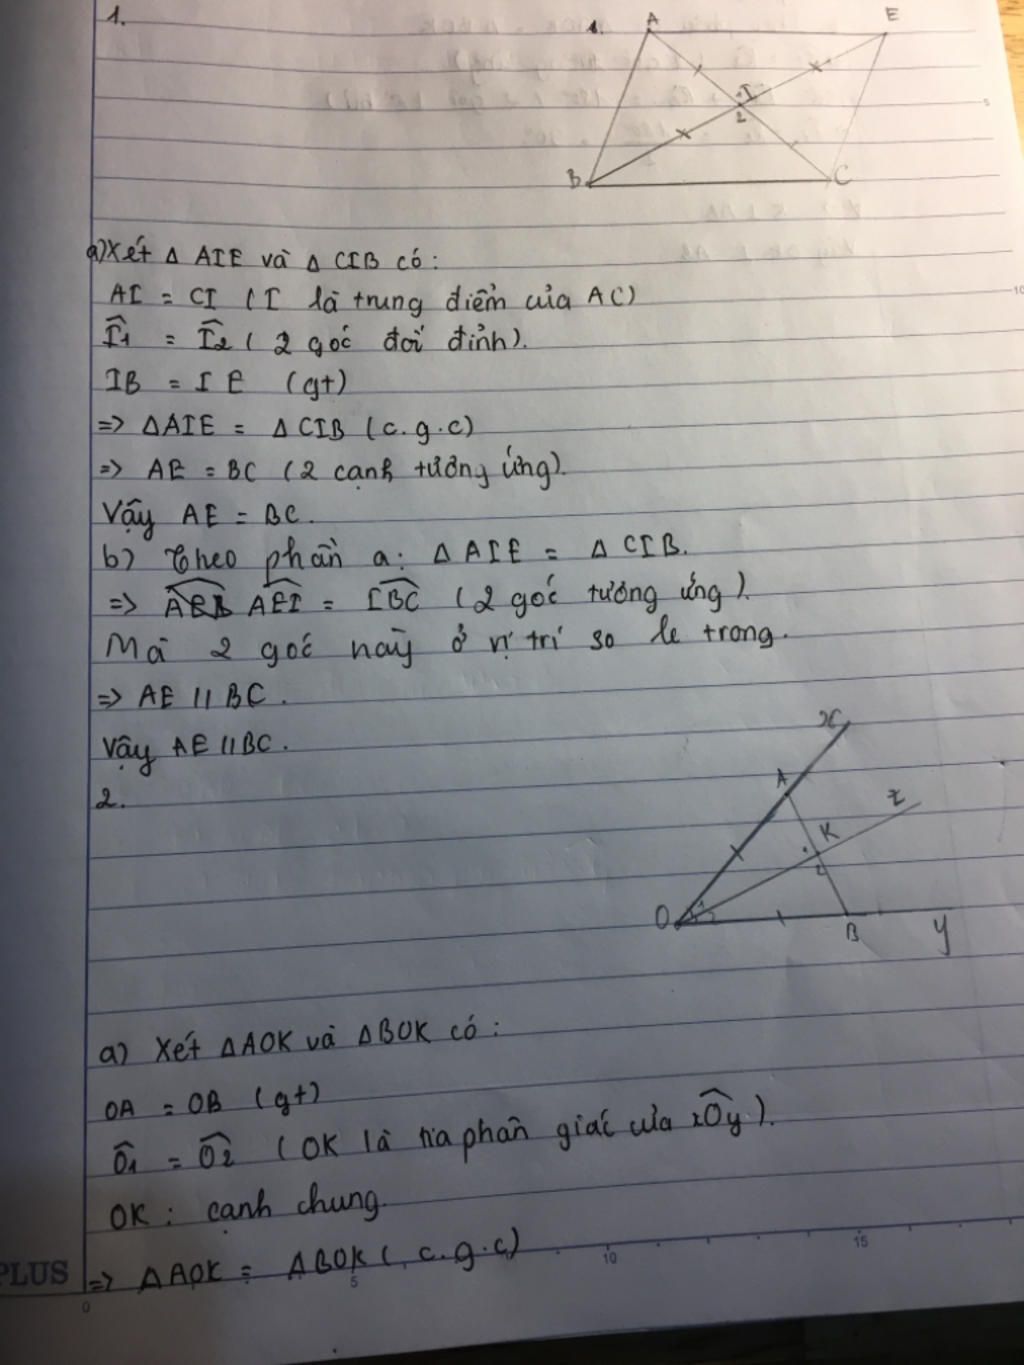 1.
1.
A
E
I
2
B
C
a) Xét Δ AIE và Δ CIB có:
AI = CI (I là trung điểm của AC)
Î1 = Î2 (2 góc đối đỉnh).
IB = IE (gt)
=> ΔAIE = ΔCIB (c.g.c)
=> AE = BC (2 cạnh tương ứng).
Vậy AE = BC.
b) Theo phần a: ΔAIE = ΔCIB.
=> AEI = IBC (2 góc tương ứng).
Mà 2 góc này ở vị trí so le trong.
=> AE // BC.
Vậy AE // BC.
2.
x
A
z
K
2
O
1
2
B
y
a) Xét ΔAOK và ΔBOK có:
OA = OB (gt)
Ô1 = Ô2 (OK là tia phân giác của xÔy).
OK: cạnh chung.
=> ΔAOK = ΔBOK (c.g.c)
PLUS
0
5
10
15
5
10